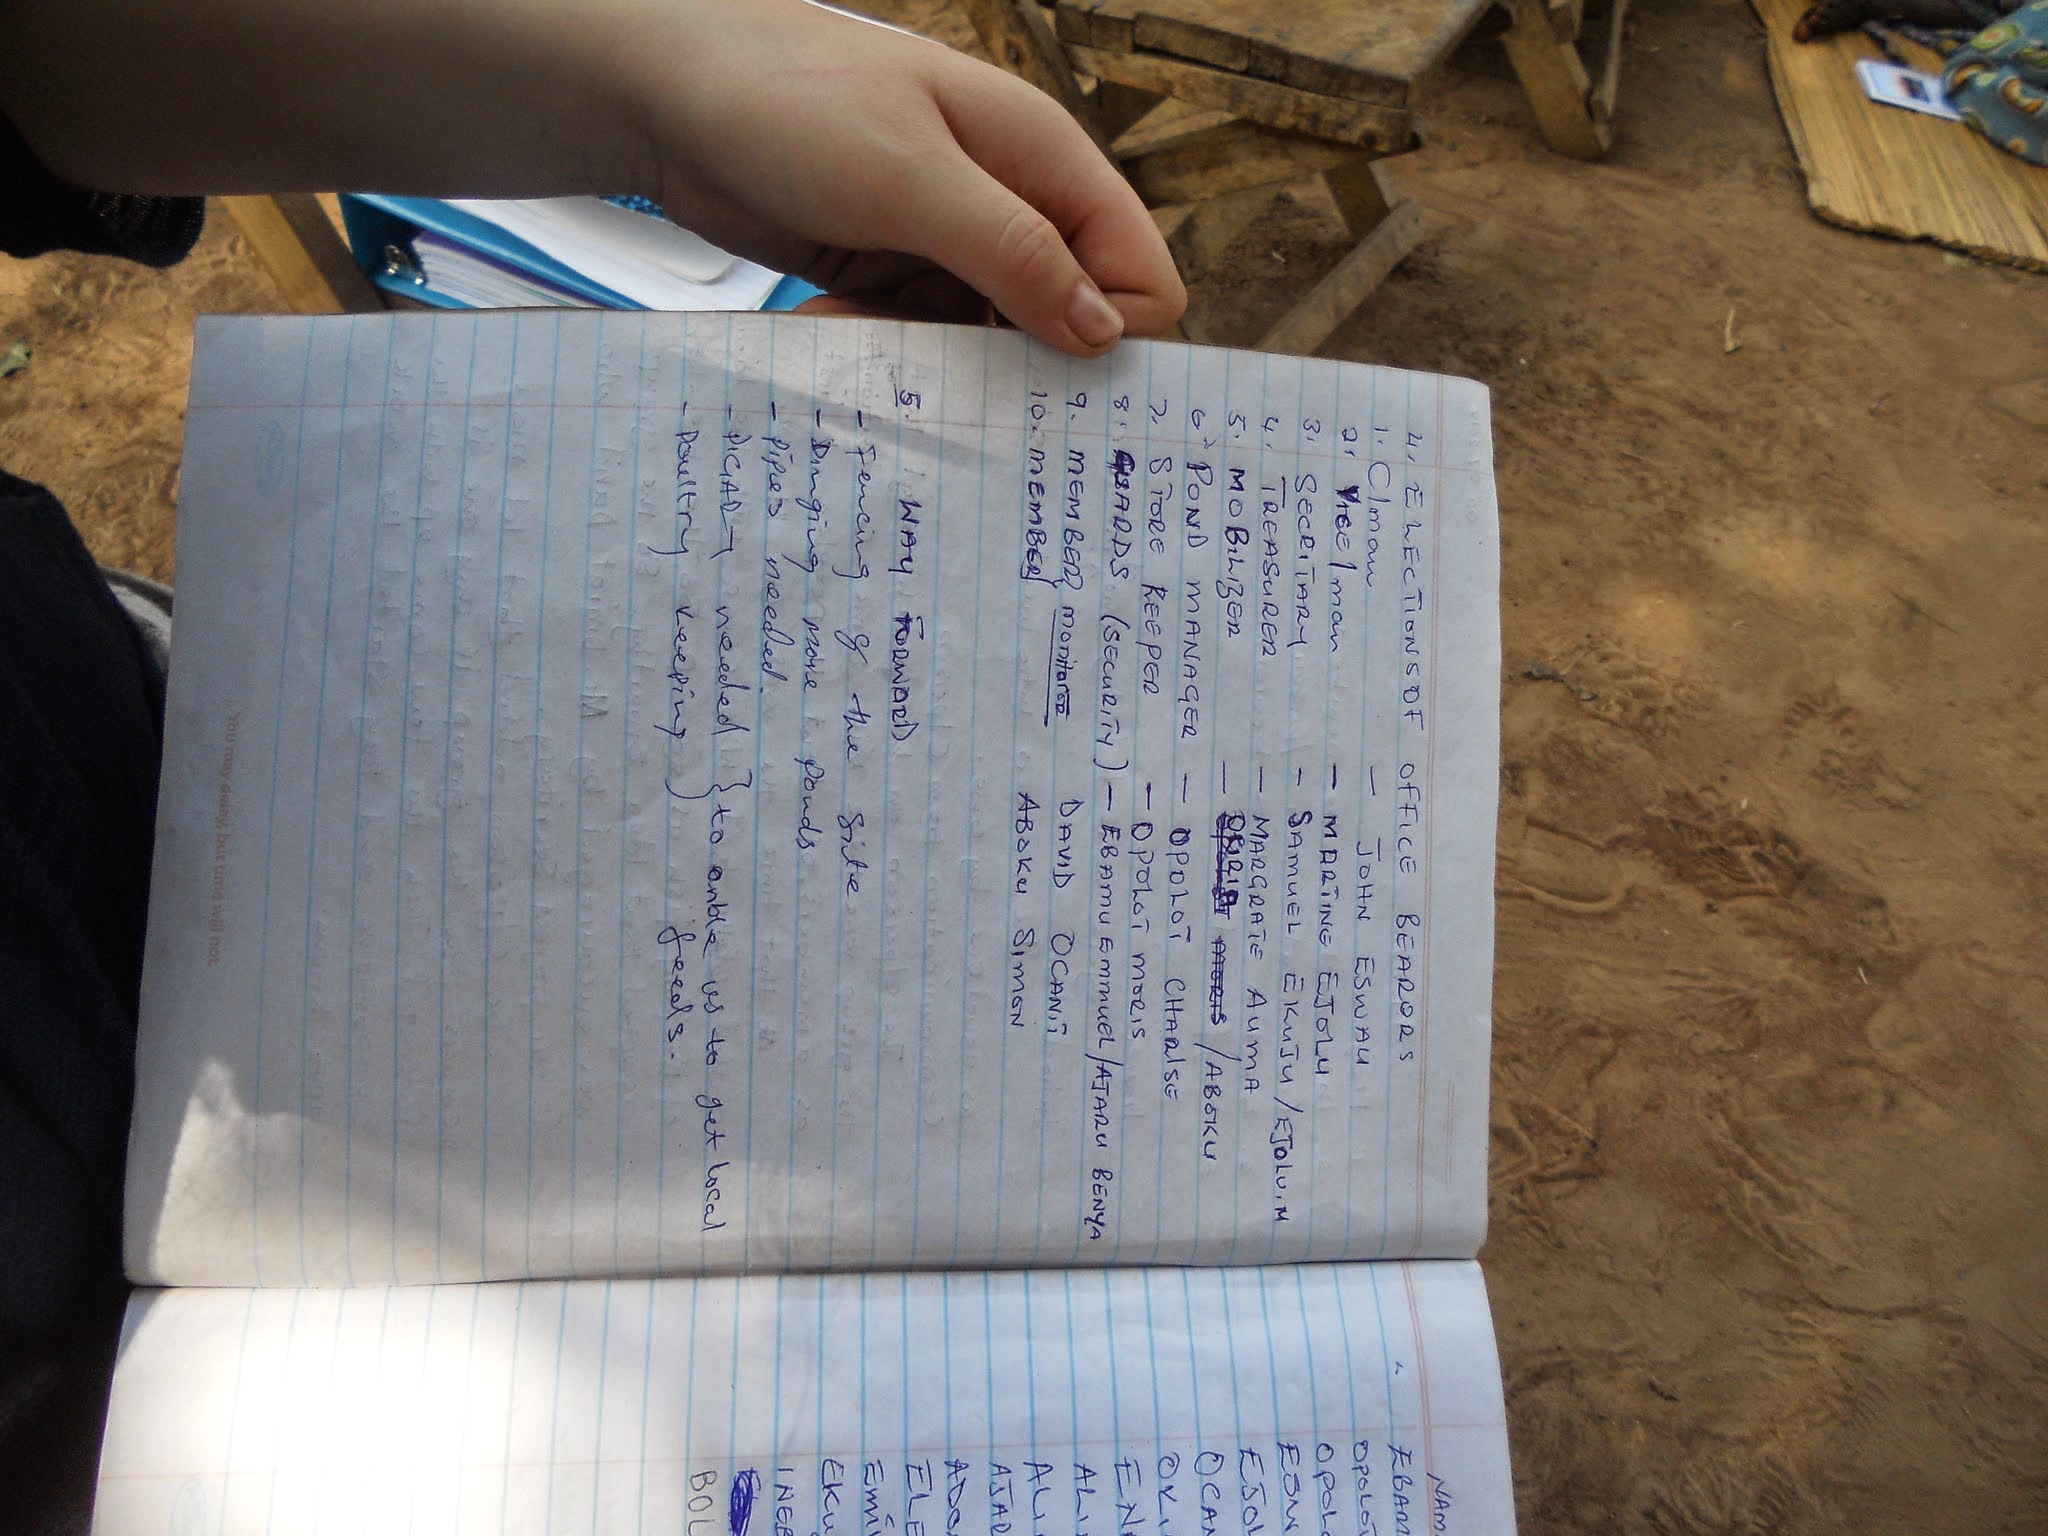 4. ELECTIONS OF OFFICE BEARORS
1. C/man — JOHN ESWAU
2. Vice/man — MARTINE EJOLU
3. SECRITARY — SAMUEL EKUJU/EJOLUIM
4. TREASURER — MARGRATE AUMA
5. MOBILIZER — MORIS /ABOKU
6. POND MANAGER — OPOLOT CHARLSE
7. STORE KEEPER — OPOLOT MORIS
8. GUARDS (SECURITY) — EBAMU EMMUEL/AJARU BENYA
9. MEMBER monitoror DAVID OCANIT
10. MEMBER ABOKU SIMON
5. WAY FORWARD
- Fencing of the Site
- Dinging more ponds
- Pipes needed.
- PIGADY needed } to enble us to get local
- Poultry keeping ) feeds.
You may delay, but time will not
NAM
EBAM
OPOLOT
OPOLO
EON
EJOL
OCAN
OKI
ENA
ALI
ALI
AJAR
ADO
ELE
EMI
EKU
INGE
BOL